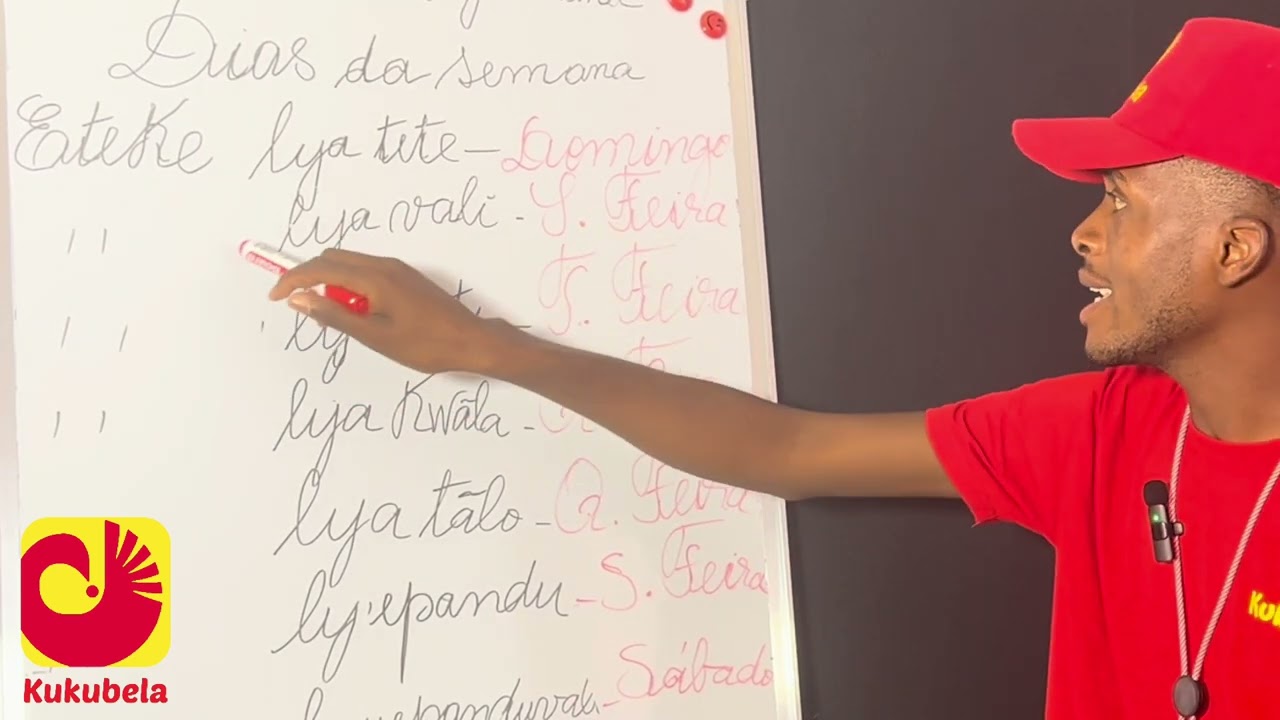 Dias da semana
Eteke lya tete – Domingo
" lya vali - S. Feira
" T. Feira
" lya Kwãla -
lya tãlo - Q. Feira
ly'epandu - S. Feira
Sábado
Kukubela